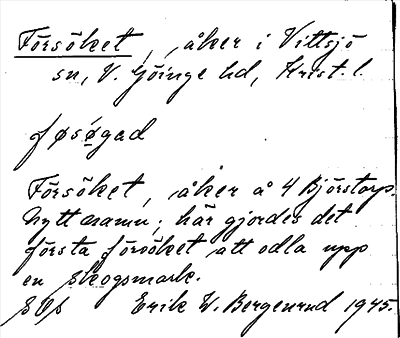 Försöket, åker i Vittsjö
sn, V. Göinge hd, Krist. l.
føsøgad
Försöket, åker å 4 Björstorp.
Nytt namn; här gjordes det
första försöket att odla upp
en skogsmark.
Erik W. Bergenrud 1945.